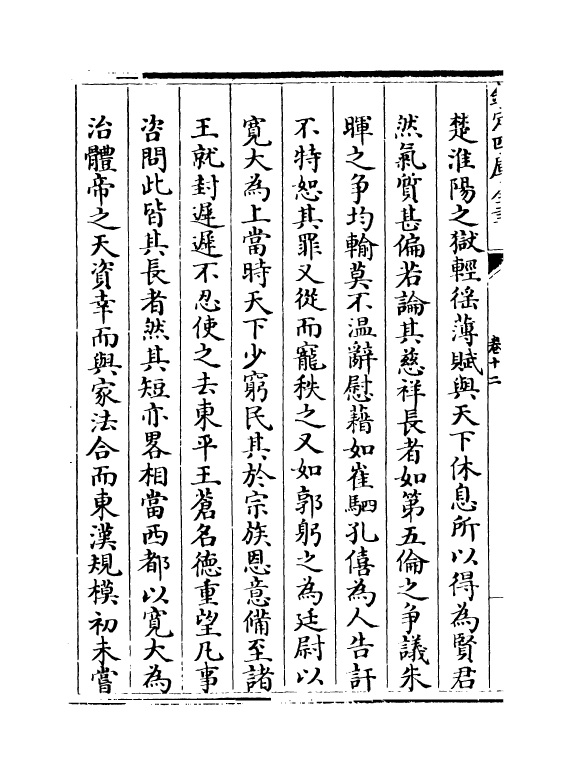 欽定四庫全書
卷十二
楚淮陽之獄輕徭薄賦與天下休息所以得為賢君
然氣質甚偏若論其慈祥長者如第五倫之争議朱
暉之争均輸莫不温辭慰藉如崔駰孔僖為人告訐
不特恕其罪又從而寵秩之又如郭躬之為廷尉以
寛大為上當時天下少窮民其於宗族恩意備至諸
王就封遲遲不忍使之去東平王蒼名徳重望凡事
咨問此皆其長者然其短亦畧相當西都以寛大為
治體帝之天資幸而與家法合而東漢規模初未嘗